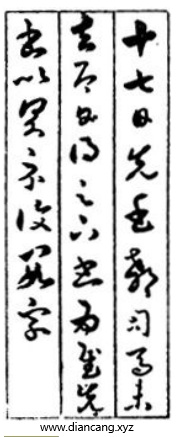 十七日先書郗司馬未
去即日得足下書為慰先
書以具示復數字
www.diancang.xyz